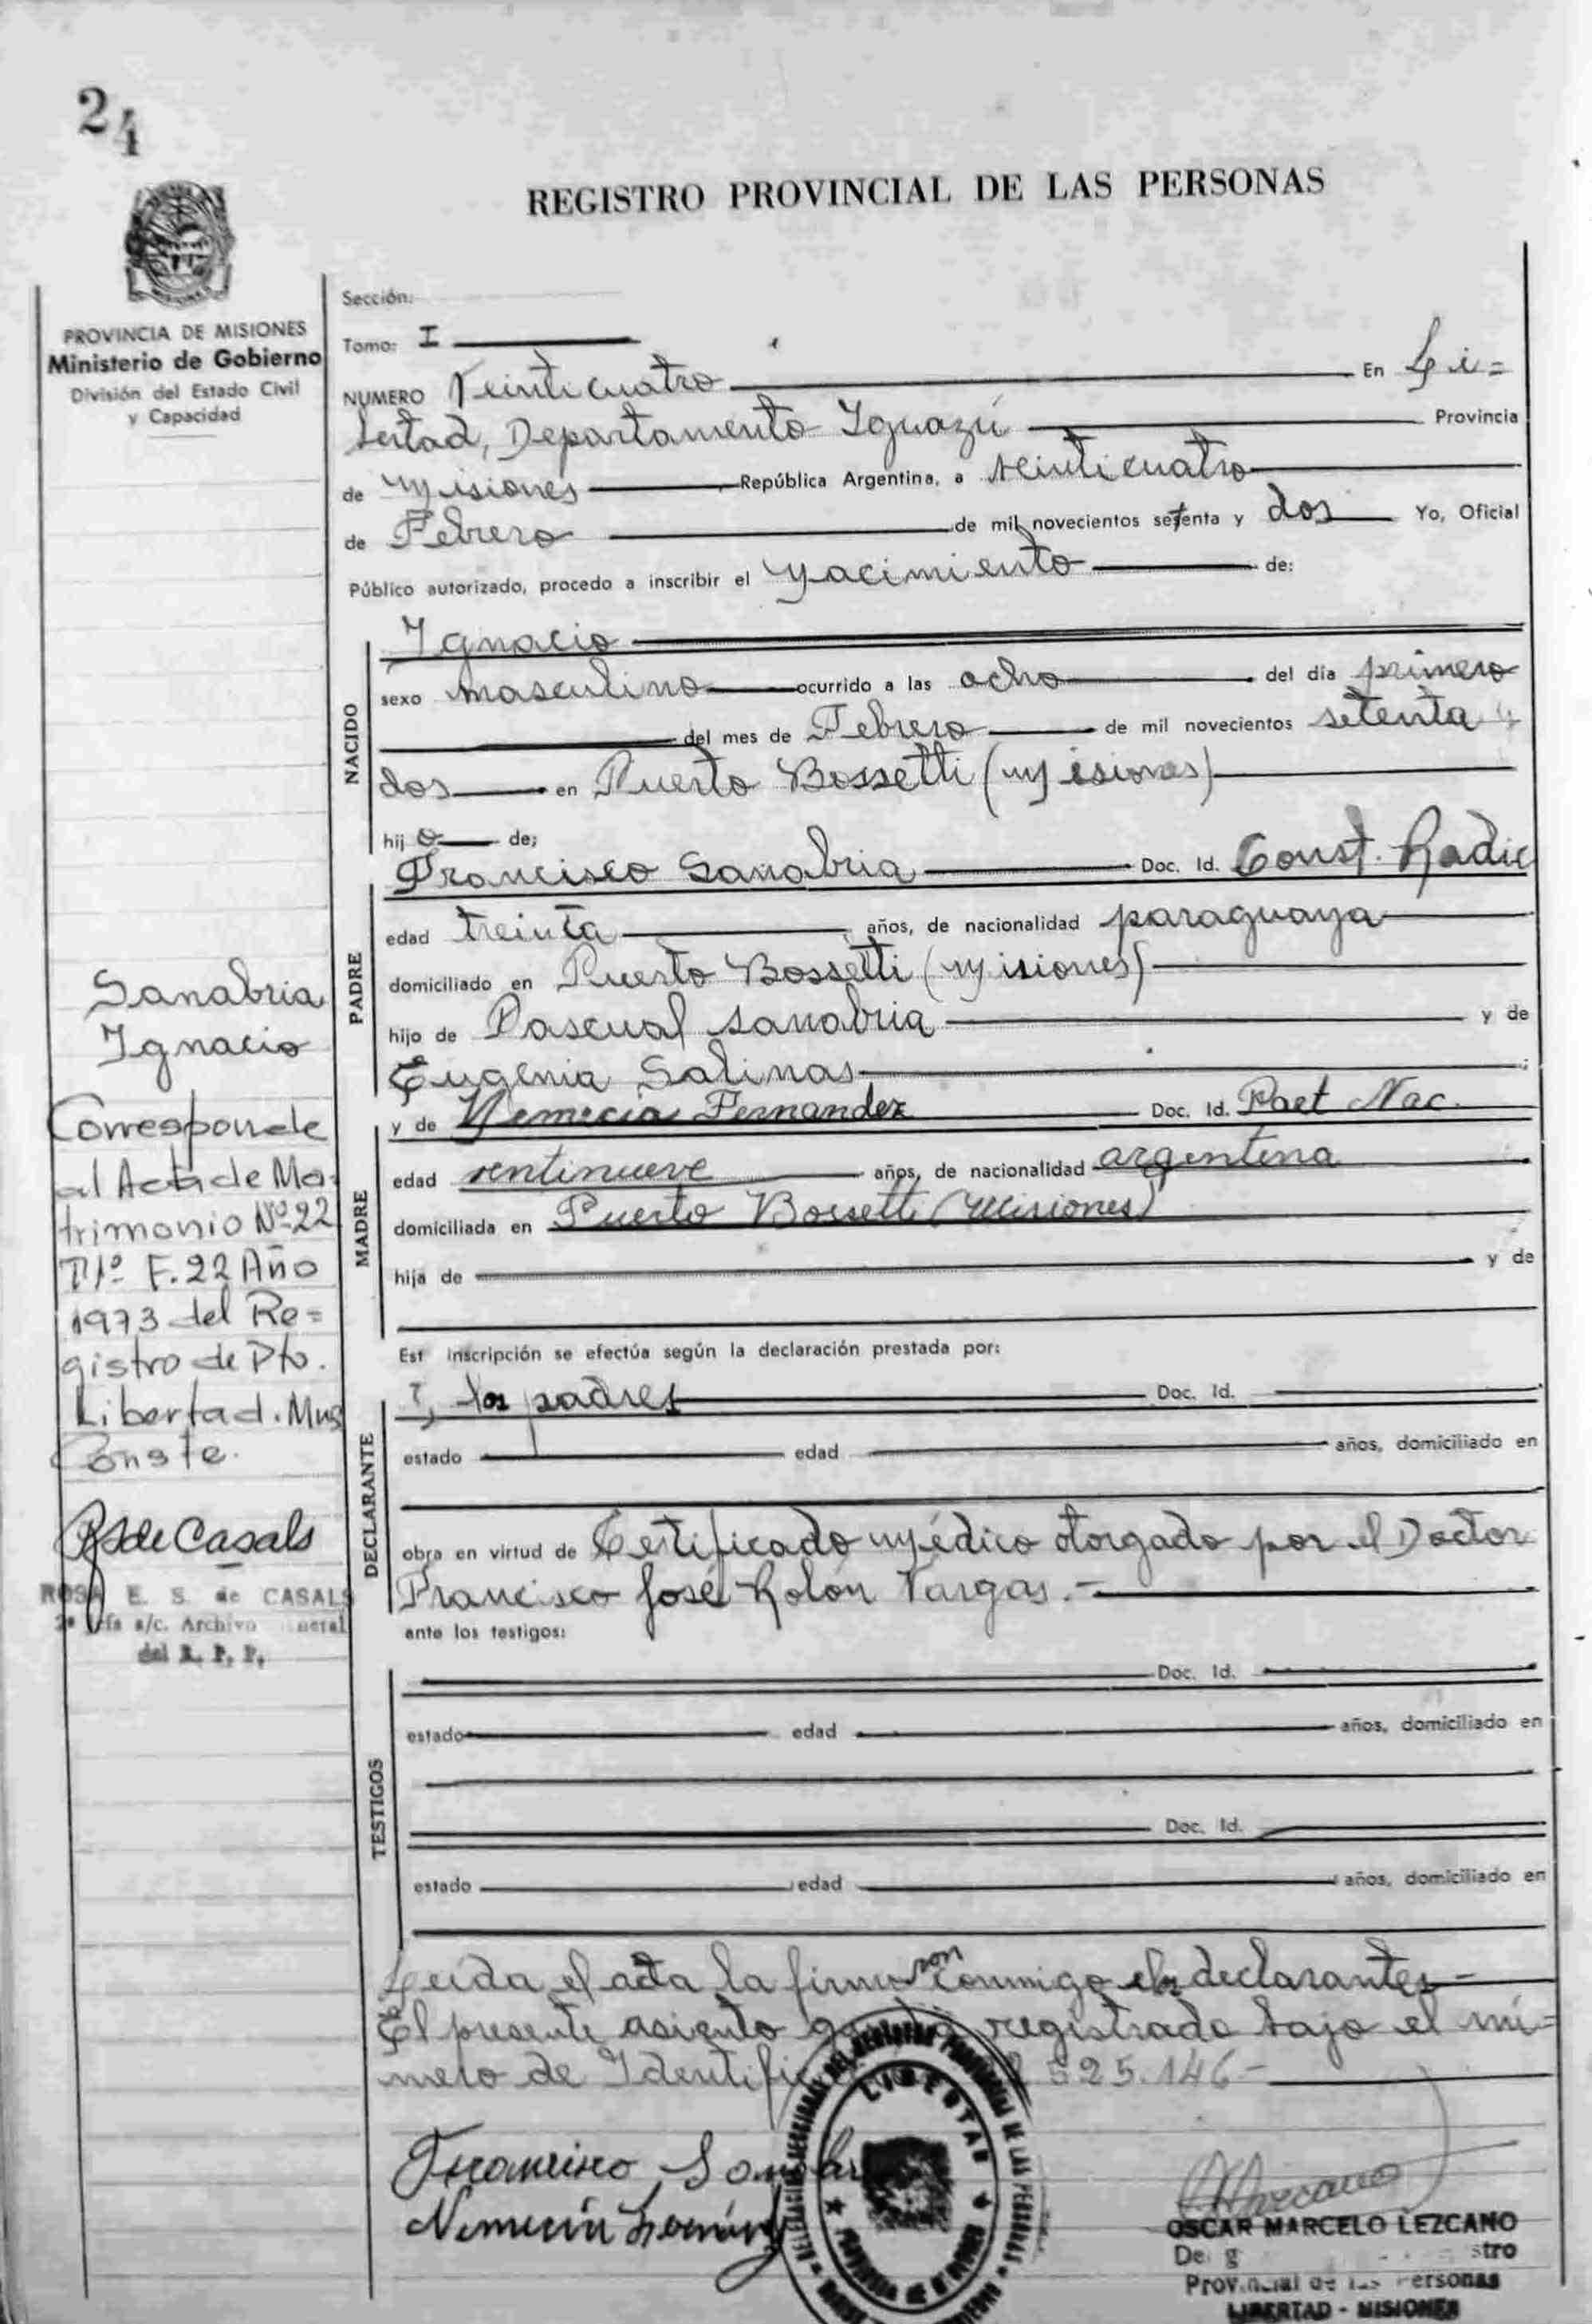 24
REGISTRO PROVINCIAL DE LAS PERSONAS
PROVINCIA DE MISIONES
Ministerio de Gobierno
División del Estado Civil
y Capacidad
Sección:
Tomo: I
NUMERO Veinticuatro En Li=
bertad, Departamento Yguazú Provincia
de Misiones República Argentina, a veinticuatro
de Febrero de mil novecientos setenta y dos Yo, Oficial
Público autorizado, procedo a inscribir el Nacimiento de:
NACIDO
Ygnacio
sexo masculino ocurrido a las ocho del día primero
del mes de Febrero de mil novecientos setenta y
dos en Puerto Bossetti (Misiones)
hijo de;
PADRE
Francisco Sanabria Doc. Id. Const. Radic
edad treinta años, de nacionalidad paraguaya
domiciliado en Puerto Bossetti (Misiones)
hijo de Pascual Sanabria y de
Eugenia Salinas
MADRE
y de Nemecia Fernandez Doc. Id. Part Nac.
edad ventinueve años, de nacionalidad argentina
domiciliada en Puerto Bossetti (Misiones)
hija de y de
Est inscripción se efectúa según la declaración prestada por:
DECLARANTE
los padres Doc. Id.
estado edad años, domiciliado en
obra en virtud de Certificado Médico otorgado por el Doctor
Francisco José Rolón Vargas.-
ante los testigos:
TESTIGOS
Doc. Id.
estado edad años, domiciliado en
Doc. Id.
estado edad años, domiciliado en
Leída el acta la firman conmigo los declarantes-
El presente asiento registrado bajo el nú=
mero de 525.146-
Francisco Sanabria
OSCAR MARCELO LEZCANO
Provincial de las Personas
LIBERTAD - MISIONES
LIBERTAD
Sanabria
Ygnacio
Corresponde
al Acta de Ma=
trimonio Nº 22
Tº 1º F. 22 Año
1973 del Re=
gistro de Pto.
Libertad. Mnes
Conste.
RSdeCasals
ROSA E. S. de CASALS
a/c. Archivo
del R. P. P.